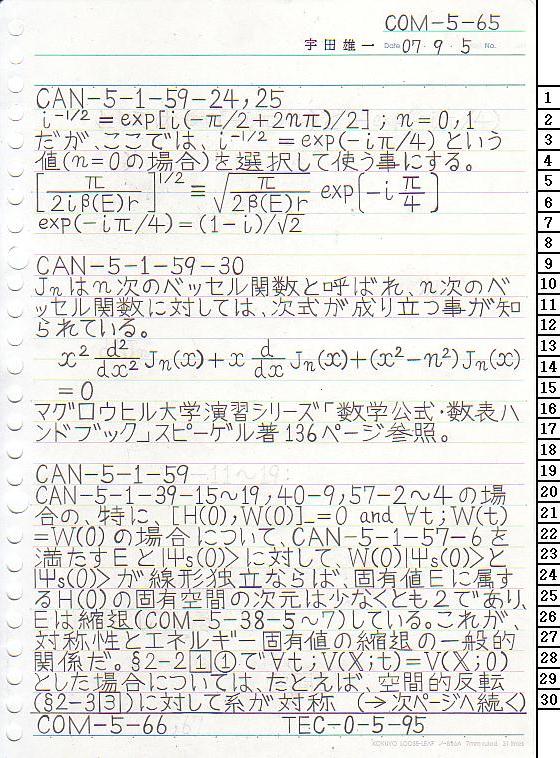 COM-5-65
宇田雄一 Date 07・9・5 No.
CAN-5-1-59-24,25
i^{-1/2} = exp[i(-π/2+2nπ)/2] ; n=0,1
だが、ここでは、i^{-1/2} = exp(-iπ/4) という
値(n=0の場合)を選択して使う事にする。
[π/2iβ(E)r]^{1/2} ≡ √(π/2β(E)r) exp[-i π/4]
exp(-iπ/4)=(1-i)/√2
CAN-5-1-59-30
Jnはn次のベッセル関数と呼ばれ、n次のベ
ッセル関数に対しては、次式が成り立つ事が知
られている。
x² d²/dx² Jn(x)+x d/dx Jn(x)+(x²-n²)Jn(x)
=0
マグロウヒル大学演習シリーズ「数学公式・数表ハ
ンドブック」スピーゲル著136ページ参照。
CAN-5-1-59
CAN-5-1-39-15~19,40-9,57-2~4の場
合の、特に、[H(0),W(0)]_=0 and ∀t;W(t)
=W(0)の場合について、CAN-5-1-57-6を
満たすEと|Ψs(0)>に対して、W(0)|Ψs(0)>と
|Ψs(0)>が線形独立ならば、固有値Eに属す
るH(0)の固有空間の次元は少なくとも2であり、
Eは縮退(COM-5-38-5~7)している。これが、
対称性とエネルギー固有値の縮退の一般的
関係だ。§2-2①①で∀t;V(𝕏;t)=V(𝕏;0)
とした場合については、たとえば、空間的反転
(§2-3③)に対して系が対称 (→次ページへ続く)
COM-5-66 TEC-0-5-95
KOKUYO LOOSE-LEAF 7mm ruled 31 lines
1
2
3
4
5
6
7
8
9
10
11
12
13
14
15
16
17
18
19
20
21
22
23
24
25
26
27
28
29
30